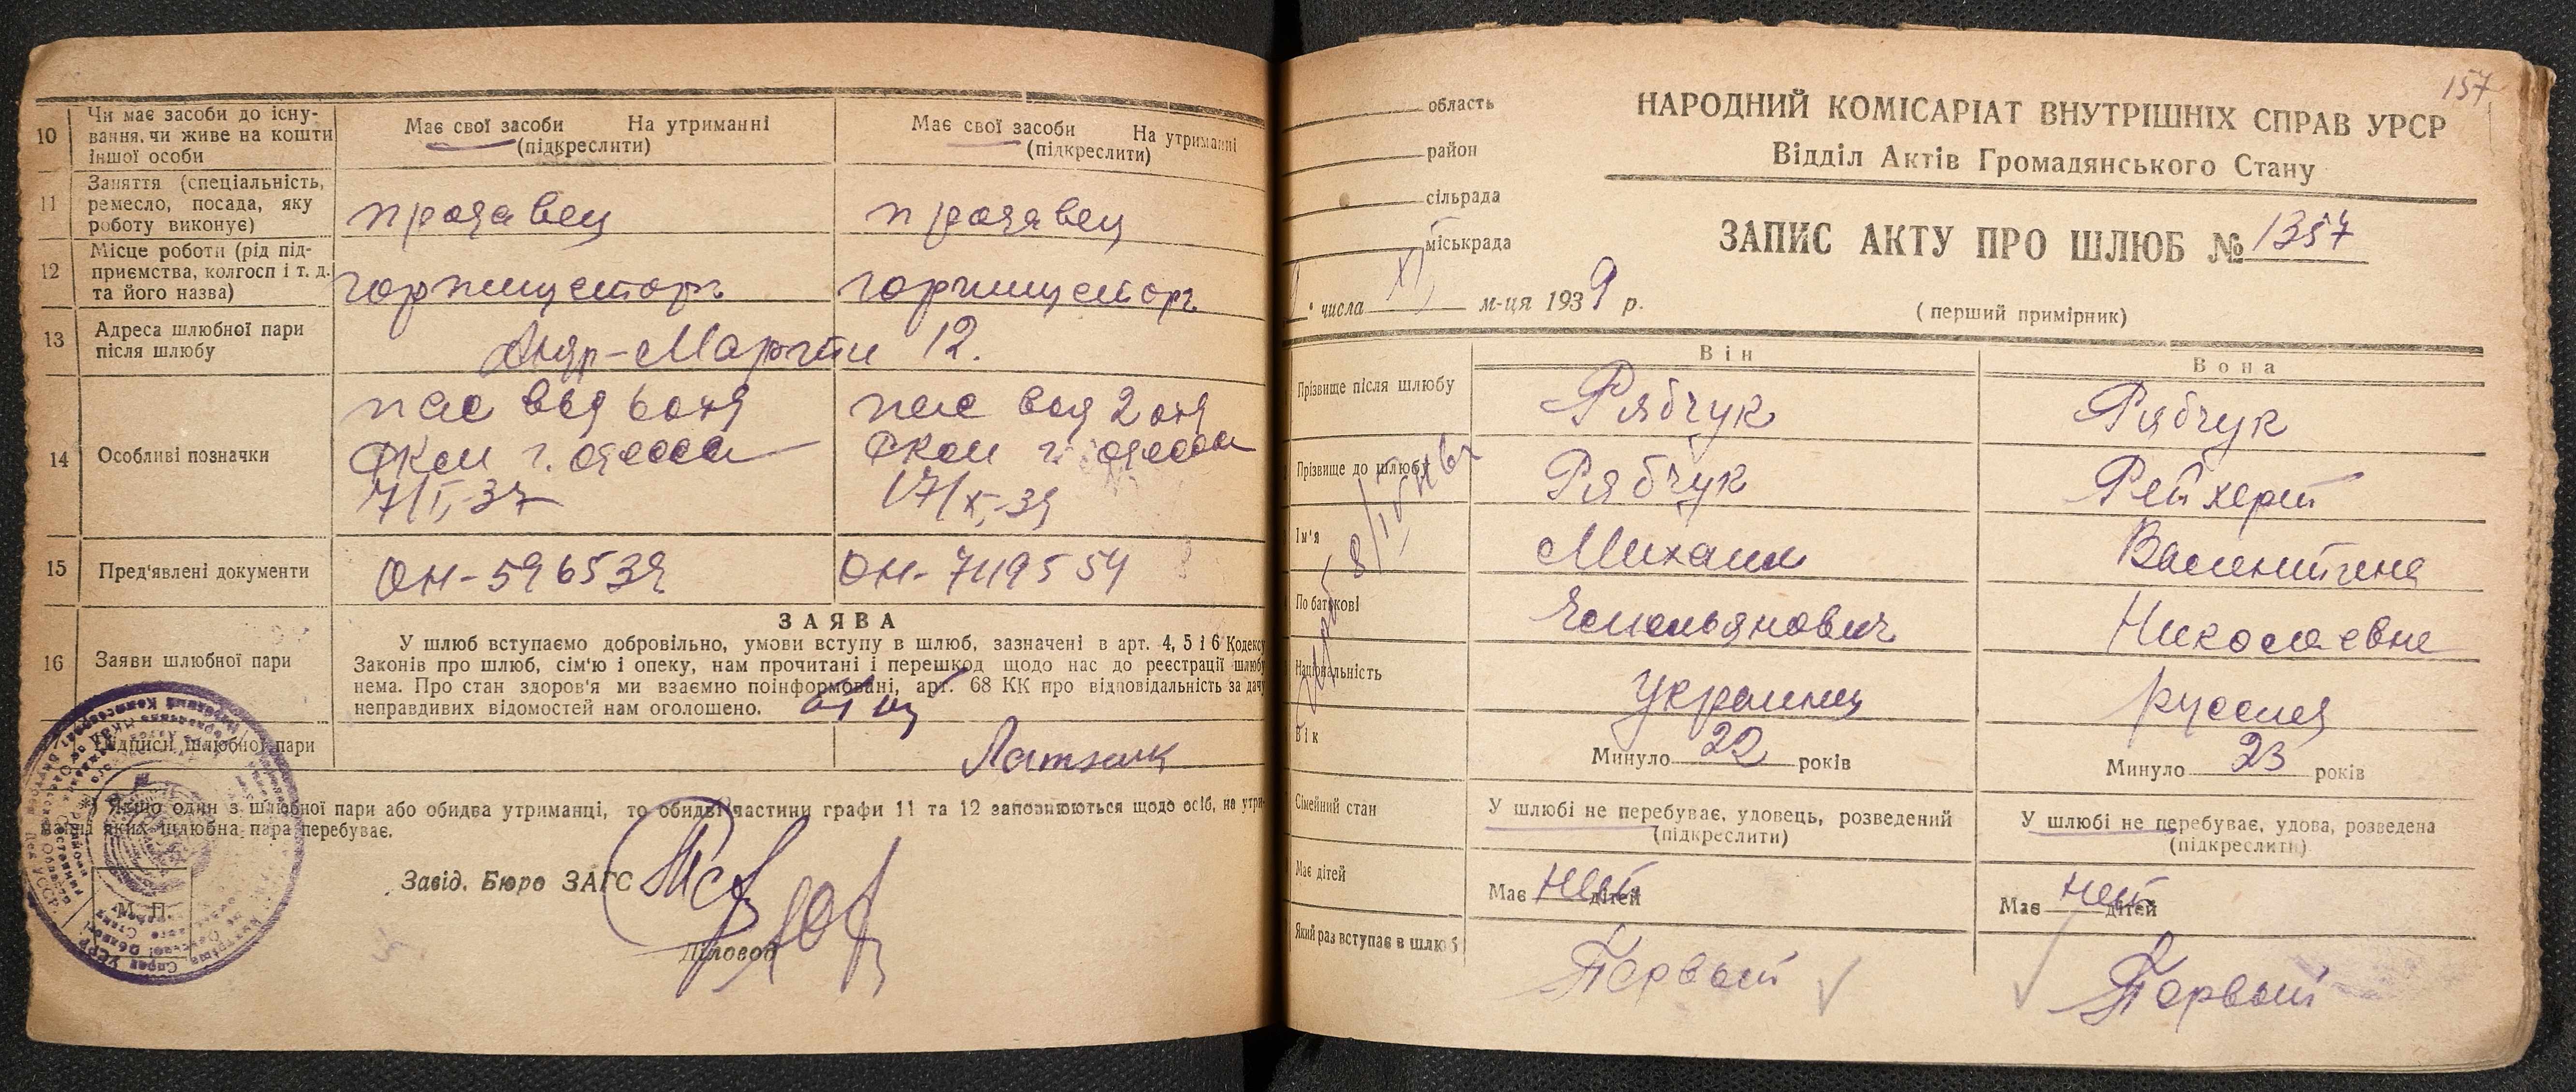 10 Чи має засоби до існу-
вання, чи живе на кошти
іншої особи
Має свої засоби На утриманні
(підкреслити)
Має свої засоби На утриманні
(підкреслити)
11 Заняття (спеціальність,
ремесло, посада, яку
роботу виконує)
продавец
продавец
12 Місце роботи (рід під-
приємства, колгосп і т. д.
та його назва)
горпищеторг
горпищеторг
13 Адреса шлюбної пари
після шлюбу
12.
14 Особливі позначки
пас выд 6 отд
РКМ г. Одесса
7/I-37
пас выд 2 отд
РКМ г. Одесса
17/X-39
15 Пред'явлені документи
ОН-596539
ОН-749554
16 Заяви шлюбної пари
ЗАЯВА
У шлюб вступаємо добровільно, умови вступу в шлюб, зазначені в арт. 4, 5 і 6 Кодексу
Законів про шлюб, сім'ю і опеку, нам прочитані і перешкод щодо нас до реєстрації шлюбу
нема. Про стан здоров'я ми взаємно поінформовані, арт. 68 КК про відповідальність за дачу
неправдивих відомостей нам оголошено.
Підписи шлюбної пари
*) Якщо один з шлюбної пари або обидва утриманці, то обидві частини графи 11 та 12 заповнюються щодо осіб, на утри-
манні яких шлюбна пара перебуває.
Завід. Бюро ЗАГС
М. П.
Діловод
157
область
район
сільрада
міськрада
числа XI м-ця 1939 р.
НАРОДНИЙ КОМІСАРІАТ ВНУТРІШНІХ СПРАВ УРСР
Відділ Актів Громадянського Стану
ЗАПИС АКТУ ПРО ШЛЮБ № 1357
(перший примірник)
Він
Вона
Прізвище після шлюбу
Рябчук
Рябчук
Прізвище до шлюбу
Рябчук
Рейхерт
Ім'я
Михаил
Валентина
По батькові
Емельянович
Николаевна
Національність
Украинец
русская
Вік
Минуло 22 років
Минуло 23 років
Сімейний стан
У шлюбі не перебуває, удовець, розведений
(підкреслити)
У шлюбі не перебуває, удова, розведена
(підкреслити)
Має дітей
Має нет дітей
Має нет дітей
Який раз вступає в шлюб
Первый
Первый